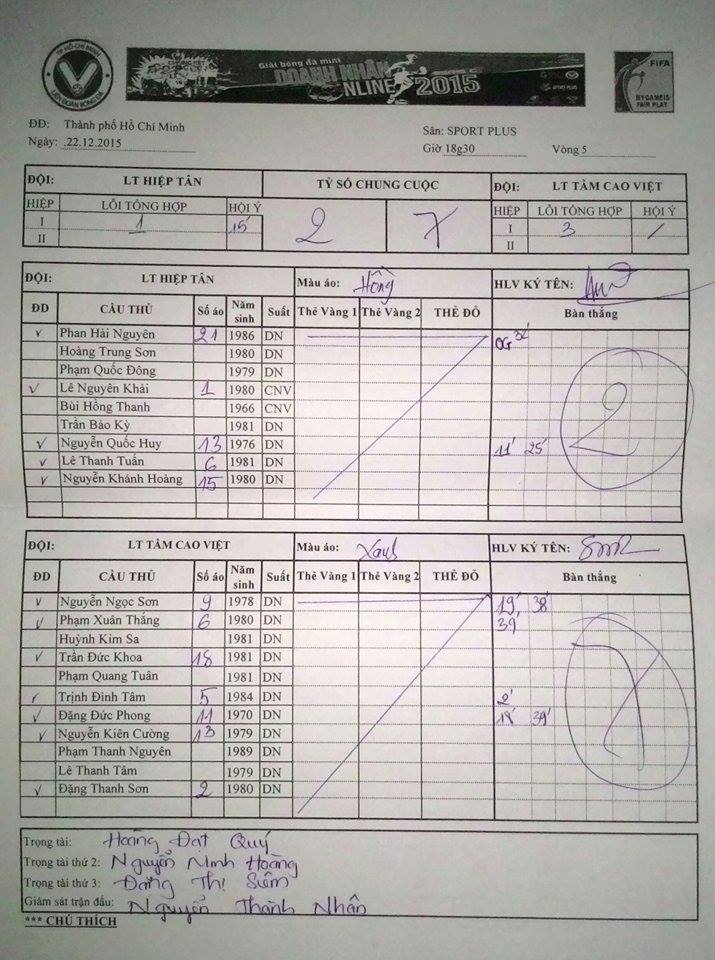 TP HỒ CHÍ MINH
LIÊN ĐOÀN BÓNG ĐÁ
Giải bóng đá mini
DOANH NHÂN
NLINE 2015
FIFA
MY GAME IS
FAIR PLAY
ĐĐ: Thành phố Hồ Chí Minh Sân: SPORT PLUS
Ngày: .22.12.2015 Giờ 18g30 Vòng 5
ĐỘI: LT HIỆP TÂN TỶ SỐ CHUNG CUỘC ĐỘI: LT TẦM CAO VIỆT
HIỆP LỖI TỔNG HỢP HỘI Ý 2 7 HIỆP LỖI TỔNG HỢP HỘI Ý
I 1 15' I 3 /
II II
ĐỘI: LT HIỆP TÂN Màu áo: Hồng HLV KÝ TÊN:
ĐD CẦU THỦ Số áo Năm sinh Suất Thẻ Vàng 1 Thẻ Vàng 2 THẺ ĐỎ Bàn thắng
Phan Hải Nguyên 21 1986 DN OG 32'
Hoàng Trung Sơn 1980 DN
Phạm Quốc Đông 1979 DN
Lê Nguyên Khải 1 1980 CNV
Bùi Hồng Thanh 1966 CNV
Trần Bảo Kỳ 1981 DN
Nguyễn Quốc Huy 13 1976 DN 11' 25'
Lê Thanh Tuấn 6 1981 DN
Nguyễn Khánh Hoàng 15 1980 DN
2
ĐỘI: LT TẦM CAO VIỆT Màu áo: Xanh HLV KÝ TÊN:
ĐD CẦU THỦ Số áo Năm sinh Suất Thẻ Vàng 1 Thẻ Vàng 2 THẺ ĐỎ Bàn thắng
Nguyễn Ngọc Sơn 9 1978 DN 19' 38'
Phạm Xuân Thăng 6 1980 DN 39'
Huỳnh Kim Sa 1981 DN
Trần Đức Khoa 18 1981 DN
Phạm Quang Tuân 1981 DN
Trịnh Đình Tâm 5 1984 DN 2'
Đặng Đức Phong 11 1970 DN 18' 39'
Nguyễn Kiên Cường 13 1979 DN
Phạm Thanh Nguyên 1989 DN
Lê Thanh Tâm 1979 DN
Đặng Thanh Sơn 2 1980 DN
7
Trọng tài: Hoàng Đạt Quý
Trọng tài thứ 2: Nguyễn Minh Hoàng
Trọng tài thứ 3: Đặng Thị Siêm
Giám sát trận đấu: Nguyễn Thành Nhân
*** CHÚ THÍCH